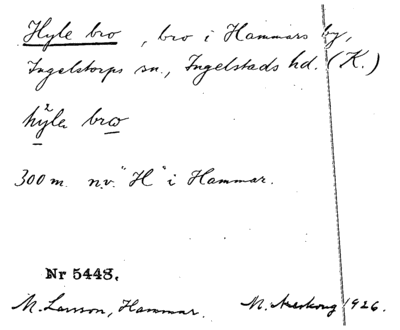 Hyle bro, bro i Hammars by,
Ingelstorps sn., Ingelstads hd. (K.)
hy̱2le bro̱
300 m. n.v. "H" i Hammar.
Nr 5448.
M. Larsson, Hammar. M. 1926.